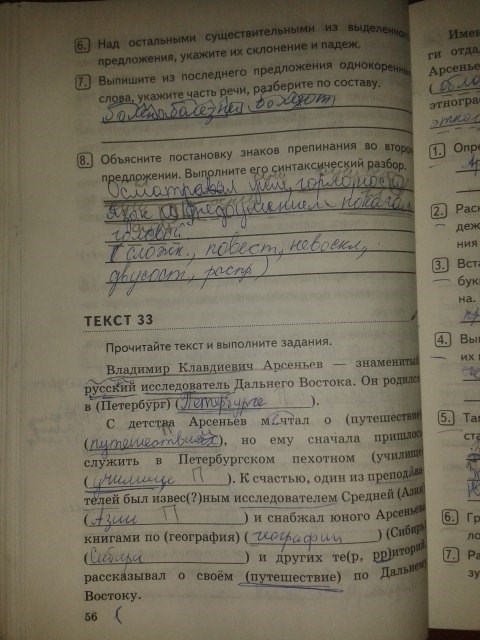 6. Над остальными существительными из выделенного
предложения, укажите их склонение и падеж.
7. Выпишите из последнего предложения однокоренные
слова, укажите часть речи, разберите по составу.
8. Объясните постановку знаков препинания во втором
предложении. Выполните его синтаксический разбор.
Осматривал
головой
(сложн., повест, невоскл,
двусост, распр)
ТЕКСТ 33
Прочитайте текст и выполните задания.
Владимир Клавдиевич Арсеньев — знаменитый
русский исследователь Дальнего Востока. Он родился
в (Петербург) (Петербурге).
С детства Арсеньев м чтал о (путешествие)
(путешествиях), но ему сначала пришлось
служить в Петербургском пехотном (училище)
(училище П). К счастью, один из препод ва-
телей был извес(?)ным исследователем Средней (Азия)
(Азии П) и снабжал юного Арсеньева
книгами по (география) (географии) (Сибирь)
(Сибири) и других те(р, рр)иторий,
рассказывал о своём (путешествие) по Дальнему
Востоку.
56
Имен
ги отда
Арсень
этногра
1. Опре
2. Раск
деж
ния
3. Вста
букв
на.
4. Вы
их
5. Та
ста
6. Гр
ло
7. Ра
зу